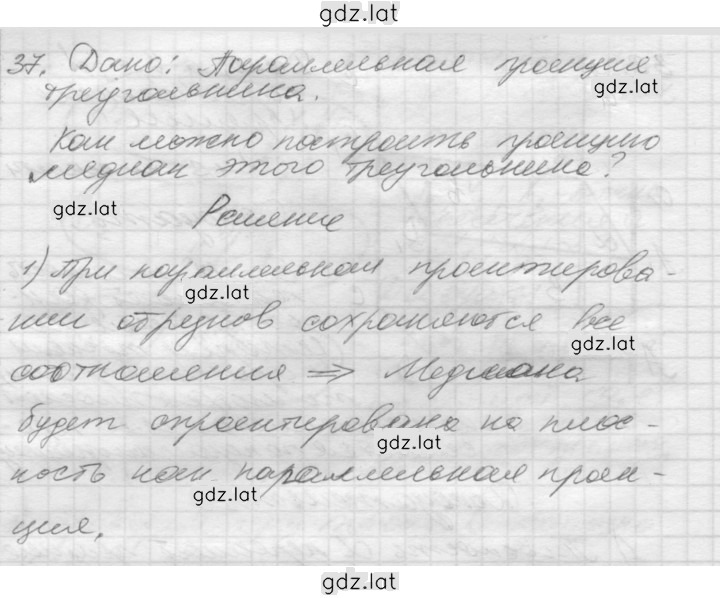 gdz.lat
37. Дано: Параллельная проекция
gdz.lat
треугольника.
Как можно построить проекцию
медиан этого треугольника?
gdz.lat
Решение
1) При параллельном проектирова-
gdz.lat
нии отрезков сохраняются все
gdz.lat
соотношения => Медиана
будет спроектирована на плос-
gdz.lat
кость как параллельная проек-
gdz.lat
ция.
gdz.lat